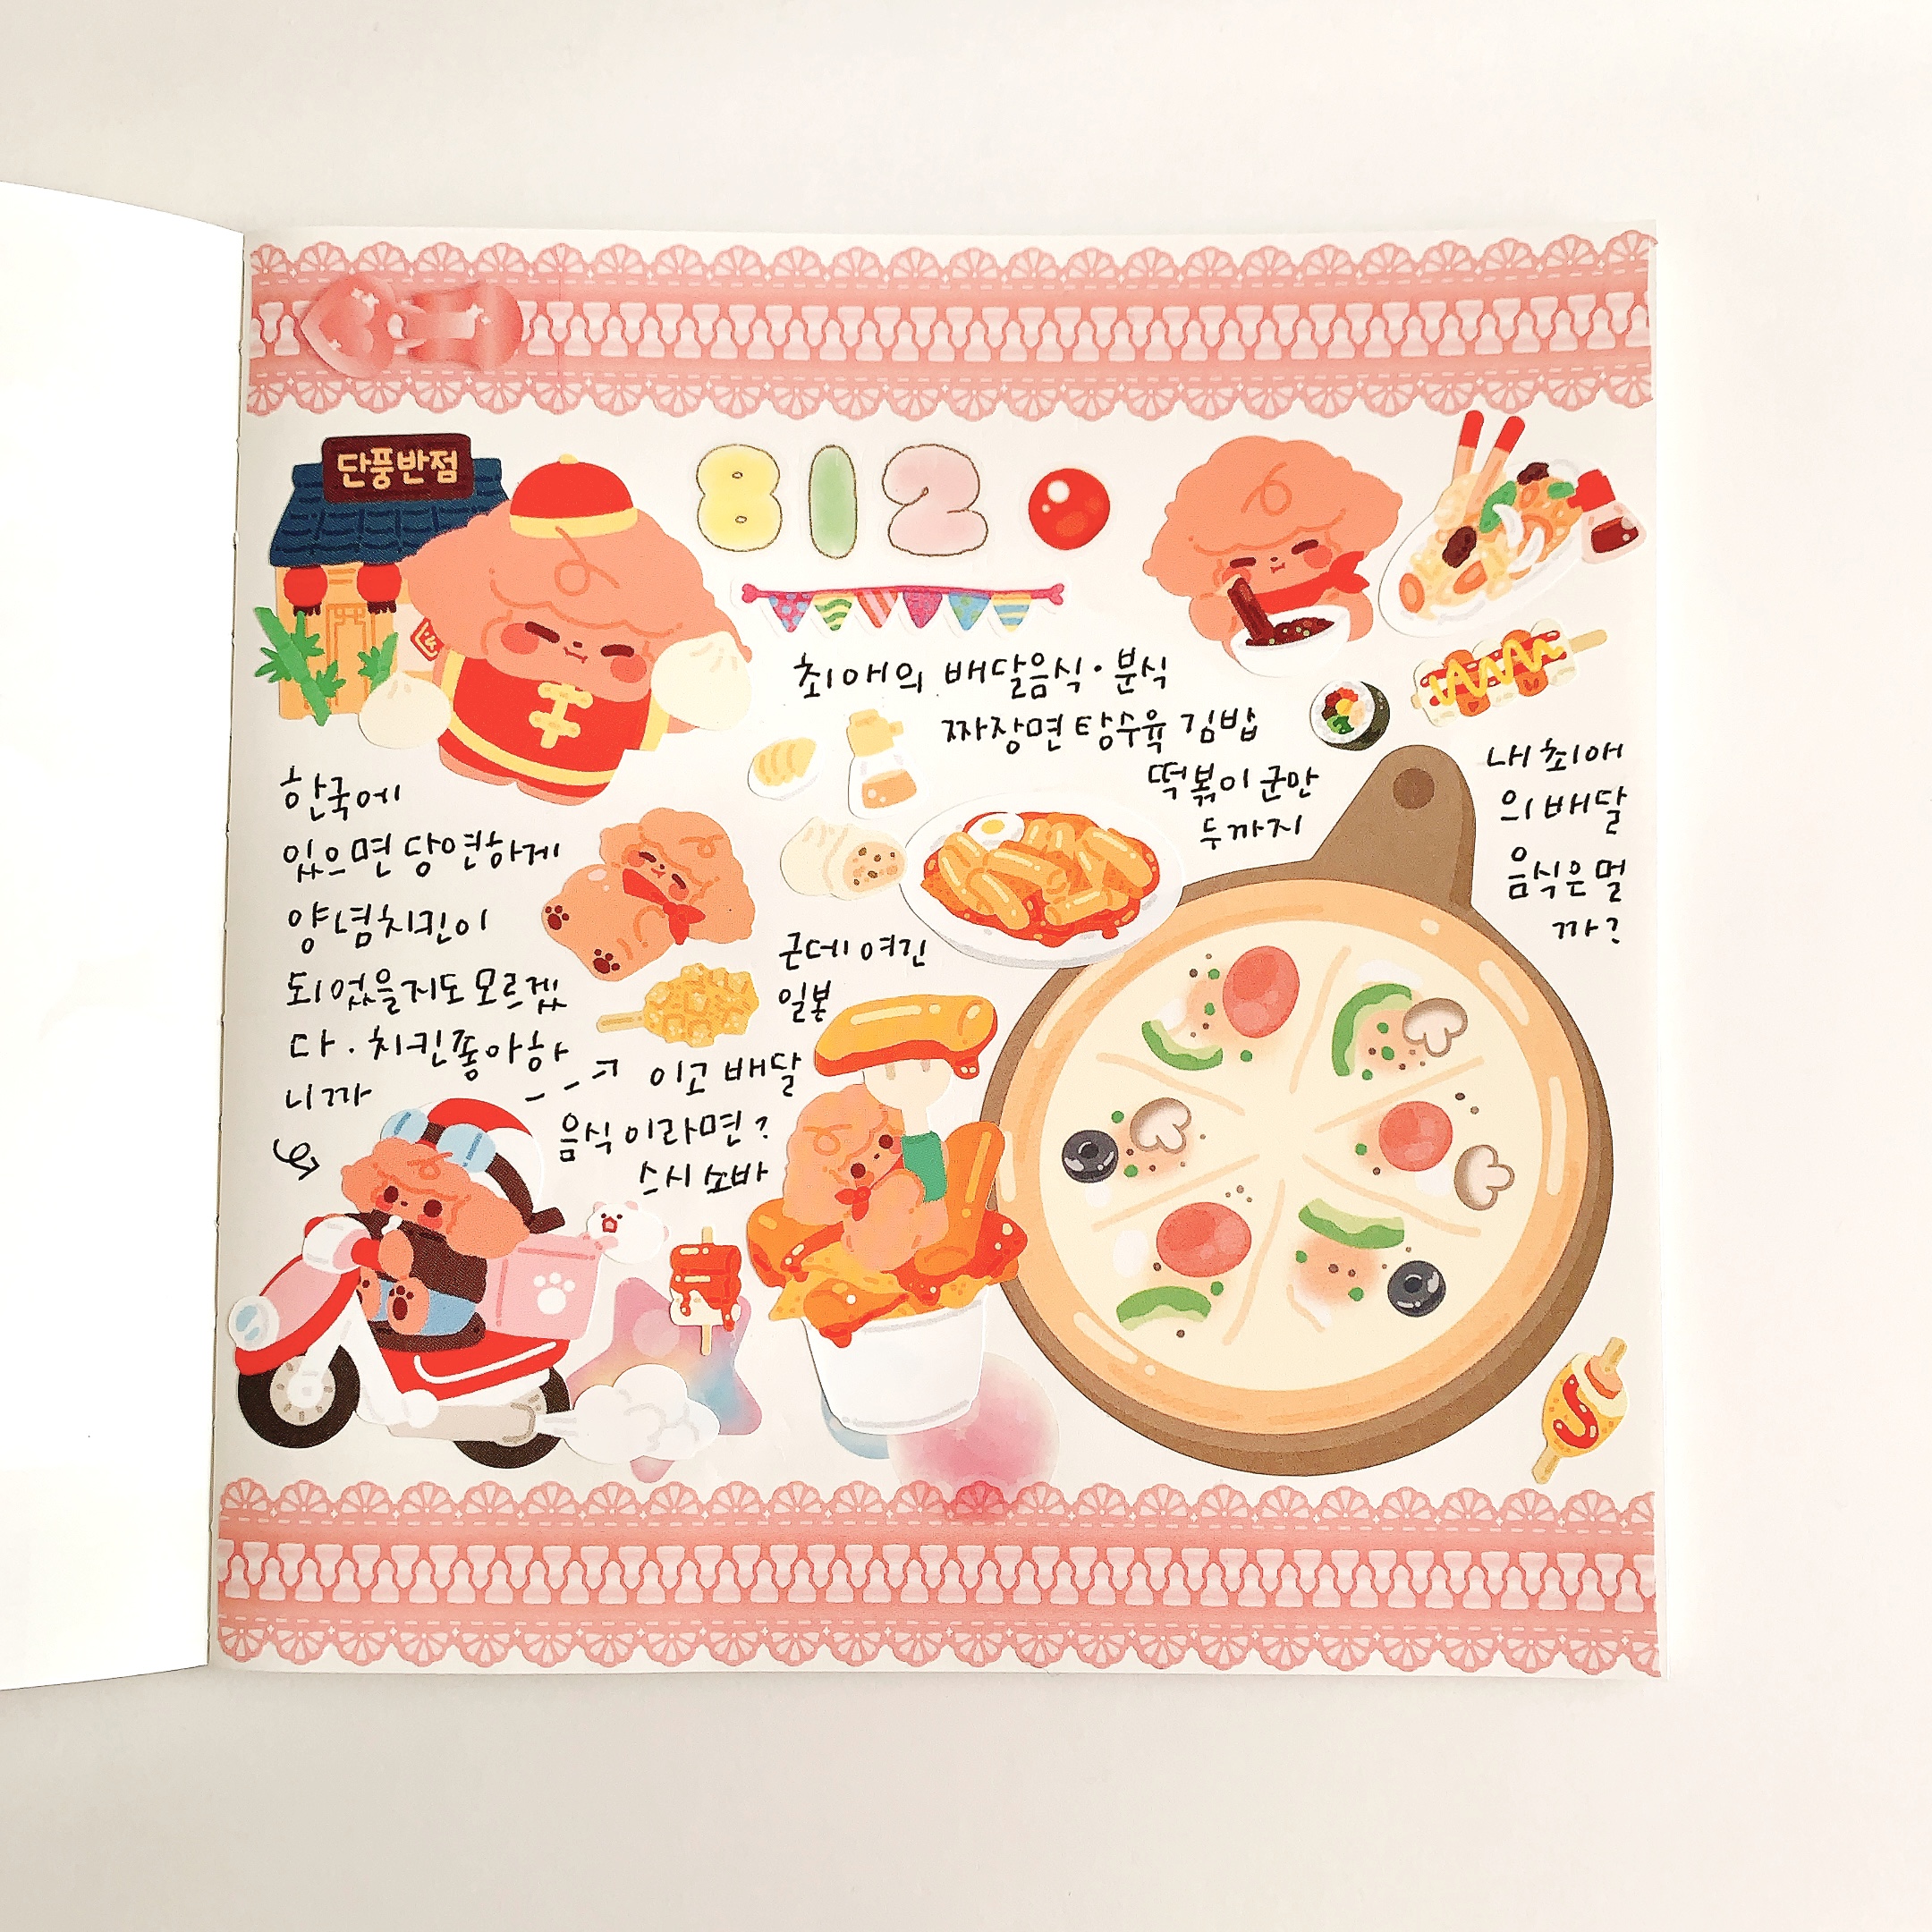 단풍반점
812
최애의 배달음식·분식
짜장면 탕수육 김밥
떡볶이 군만
두까지
내 최애
의 배달
음식은 멀
까?
한국에
있으면 당연하게
양념치킨이
되었을지도 모르겠
다. 치킨좋아하
니까
근데 여긴
일본
이고 배달
음식이라면?
스시 소바